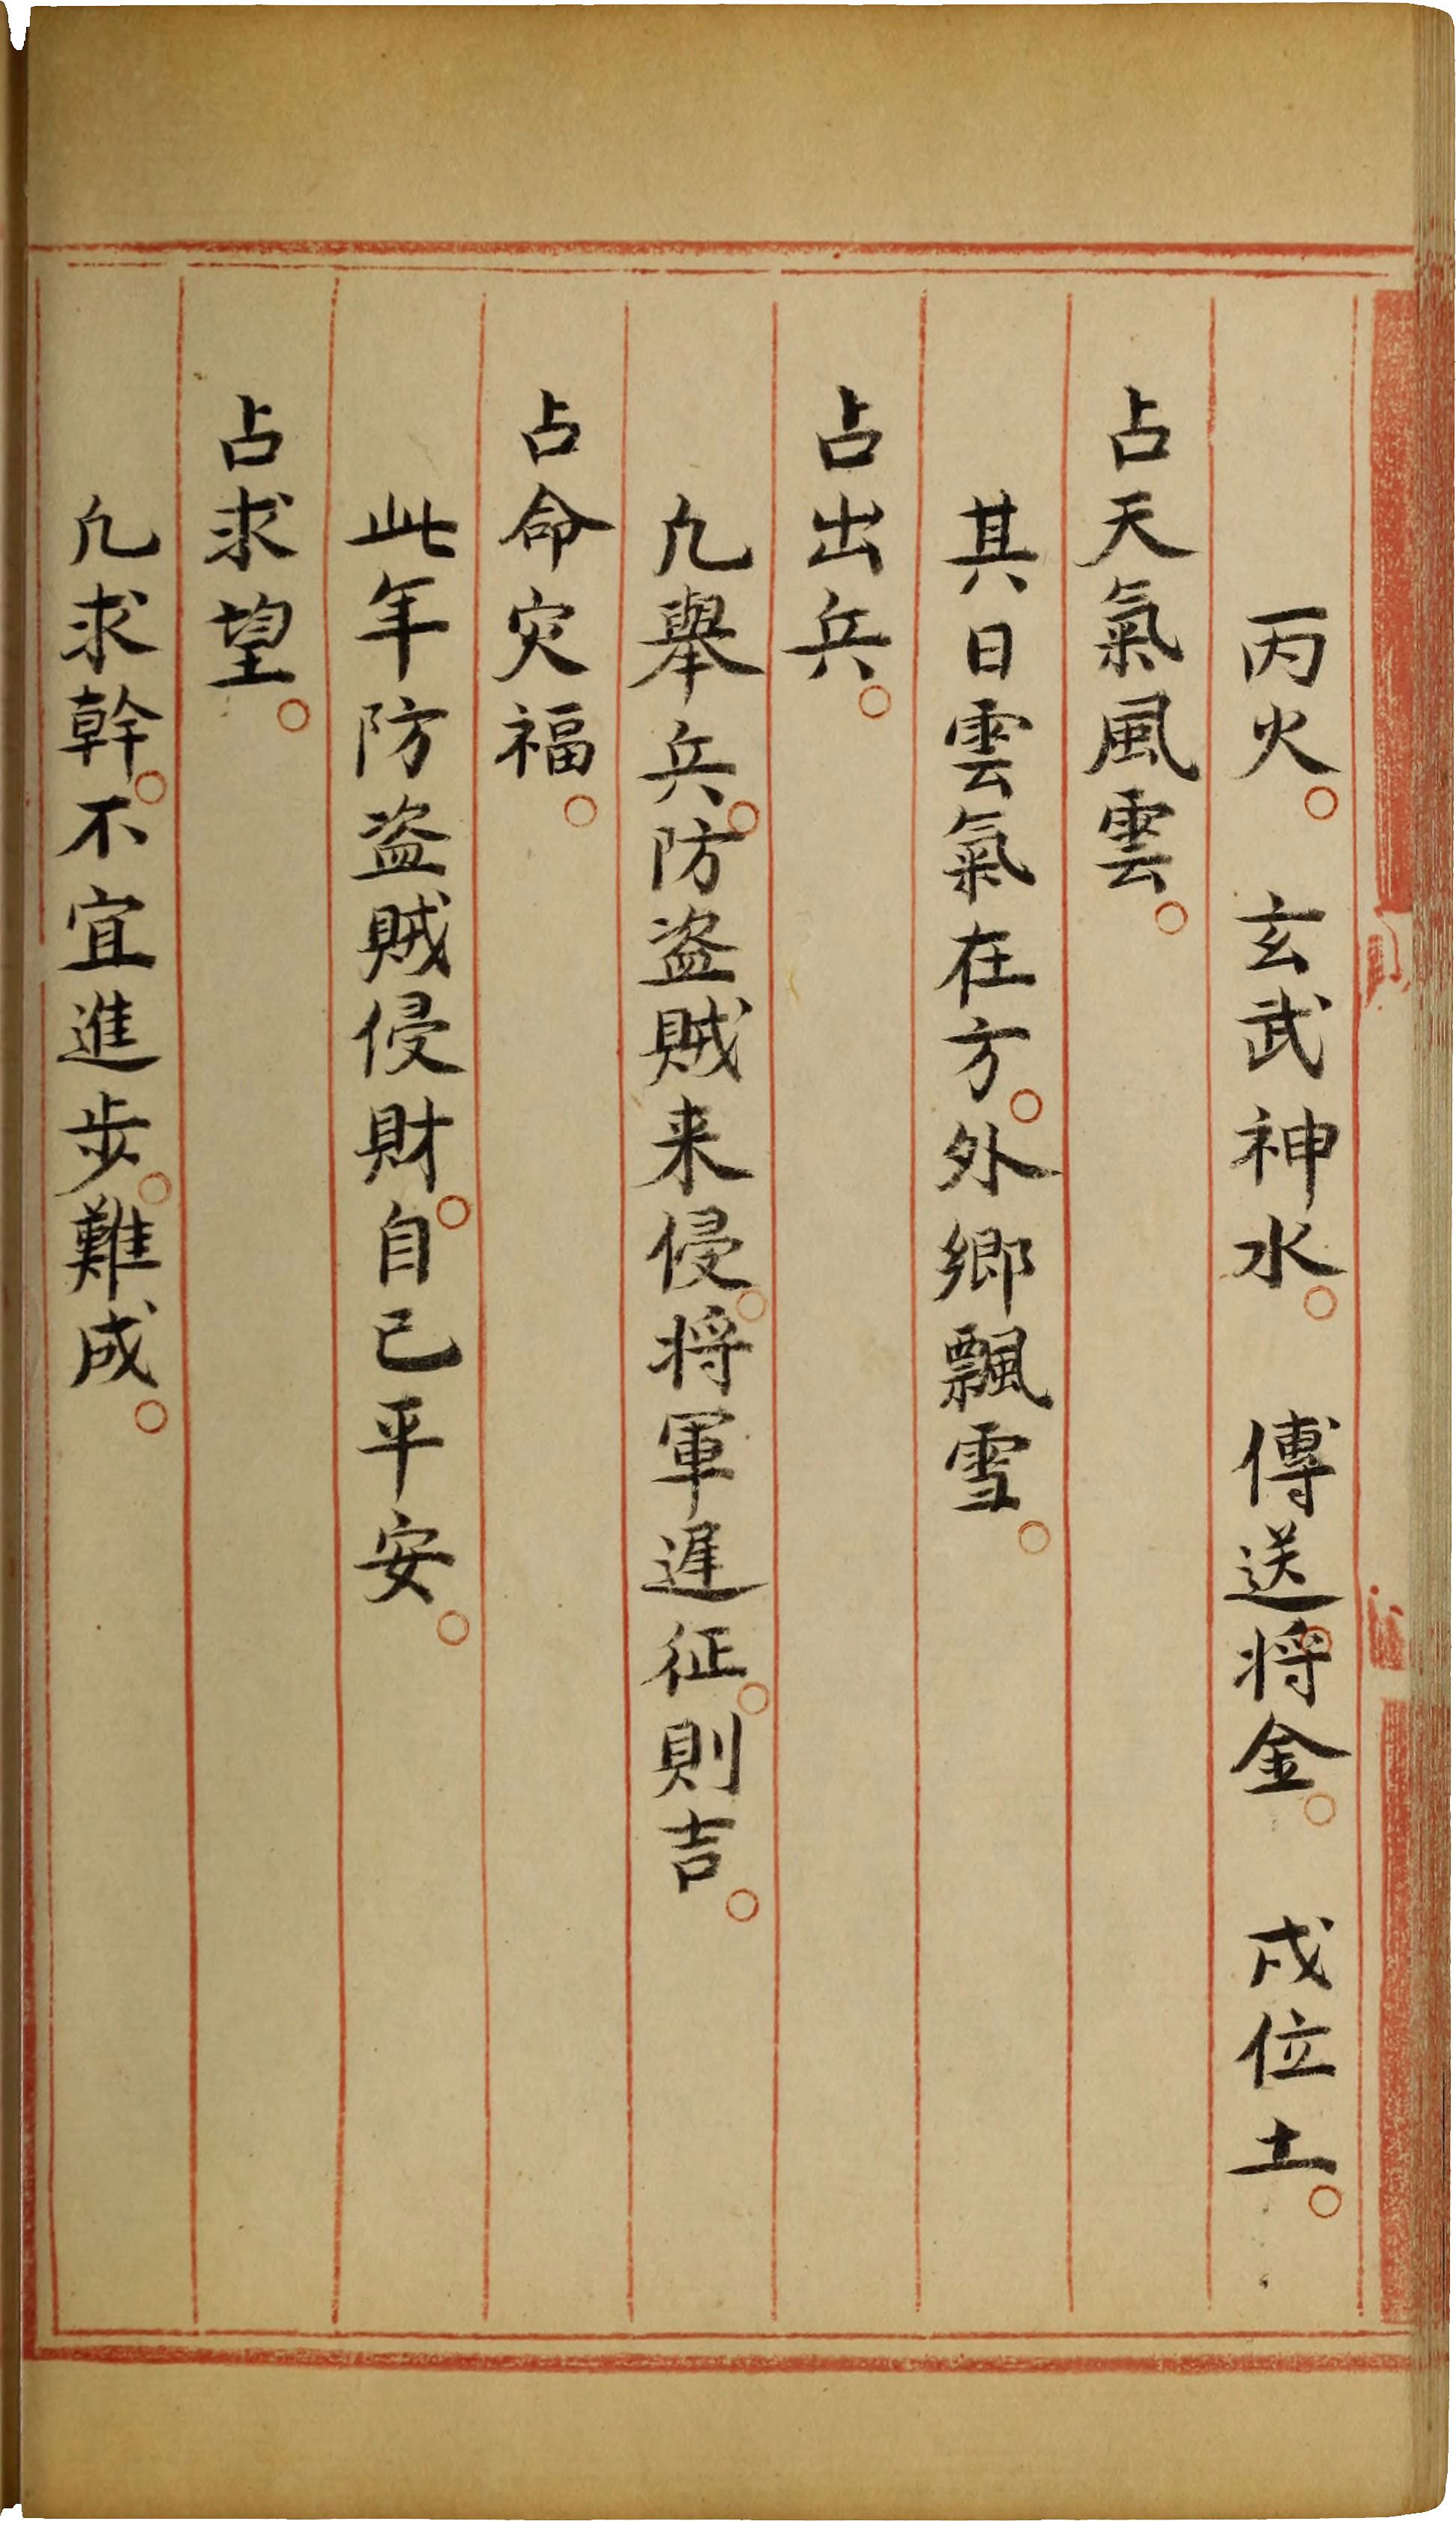 丙火。 玄武神水。 傳送。将金。 戌位土。
占天氣風雲。
其日雲氣在方。外鄉飄雪。
占出兵。
凢舉兵。防盗賊来侵。将軍遲征。則吉。
占命灾福。
此年防盗賊侵財。自已平安。
占求望。
凢求幹。不宜進步。難成。